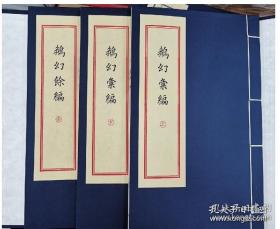 鵝幻彙編
上
鵝幻彙編
下
鵝幻餘編
孔夫子旧书网